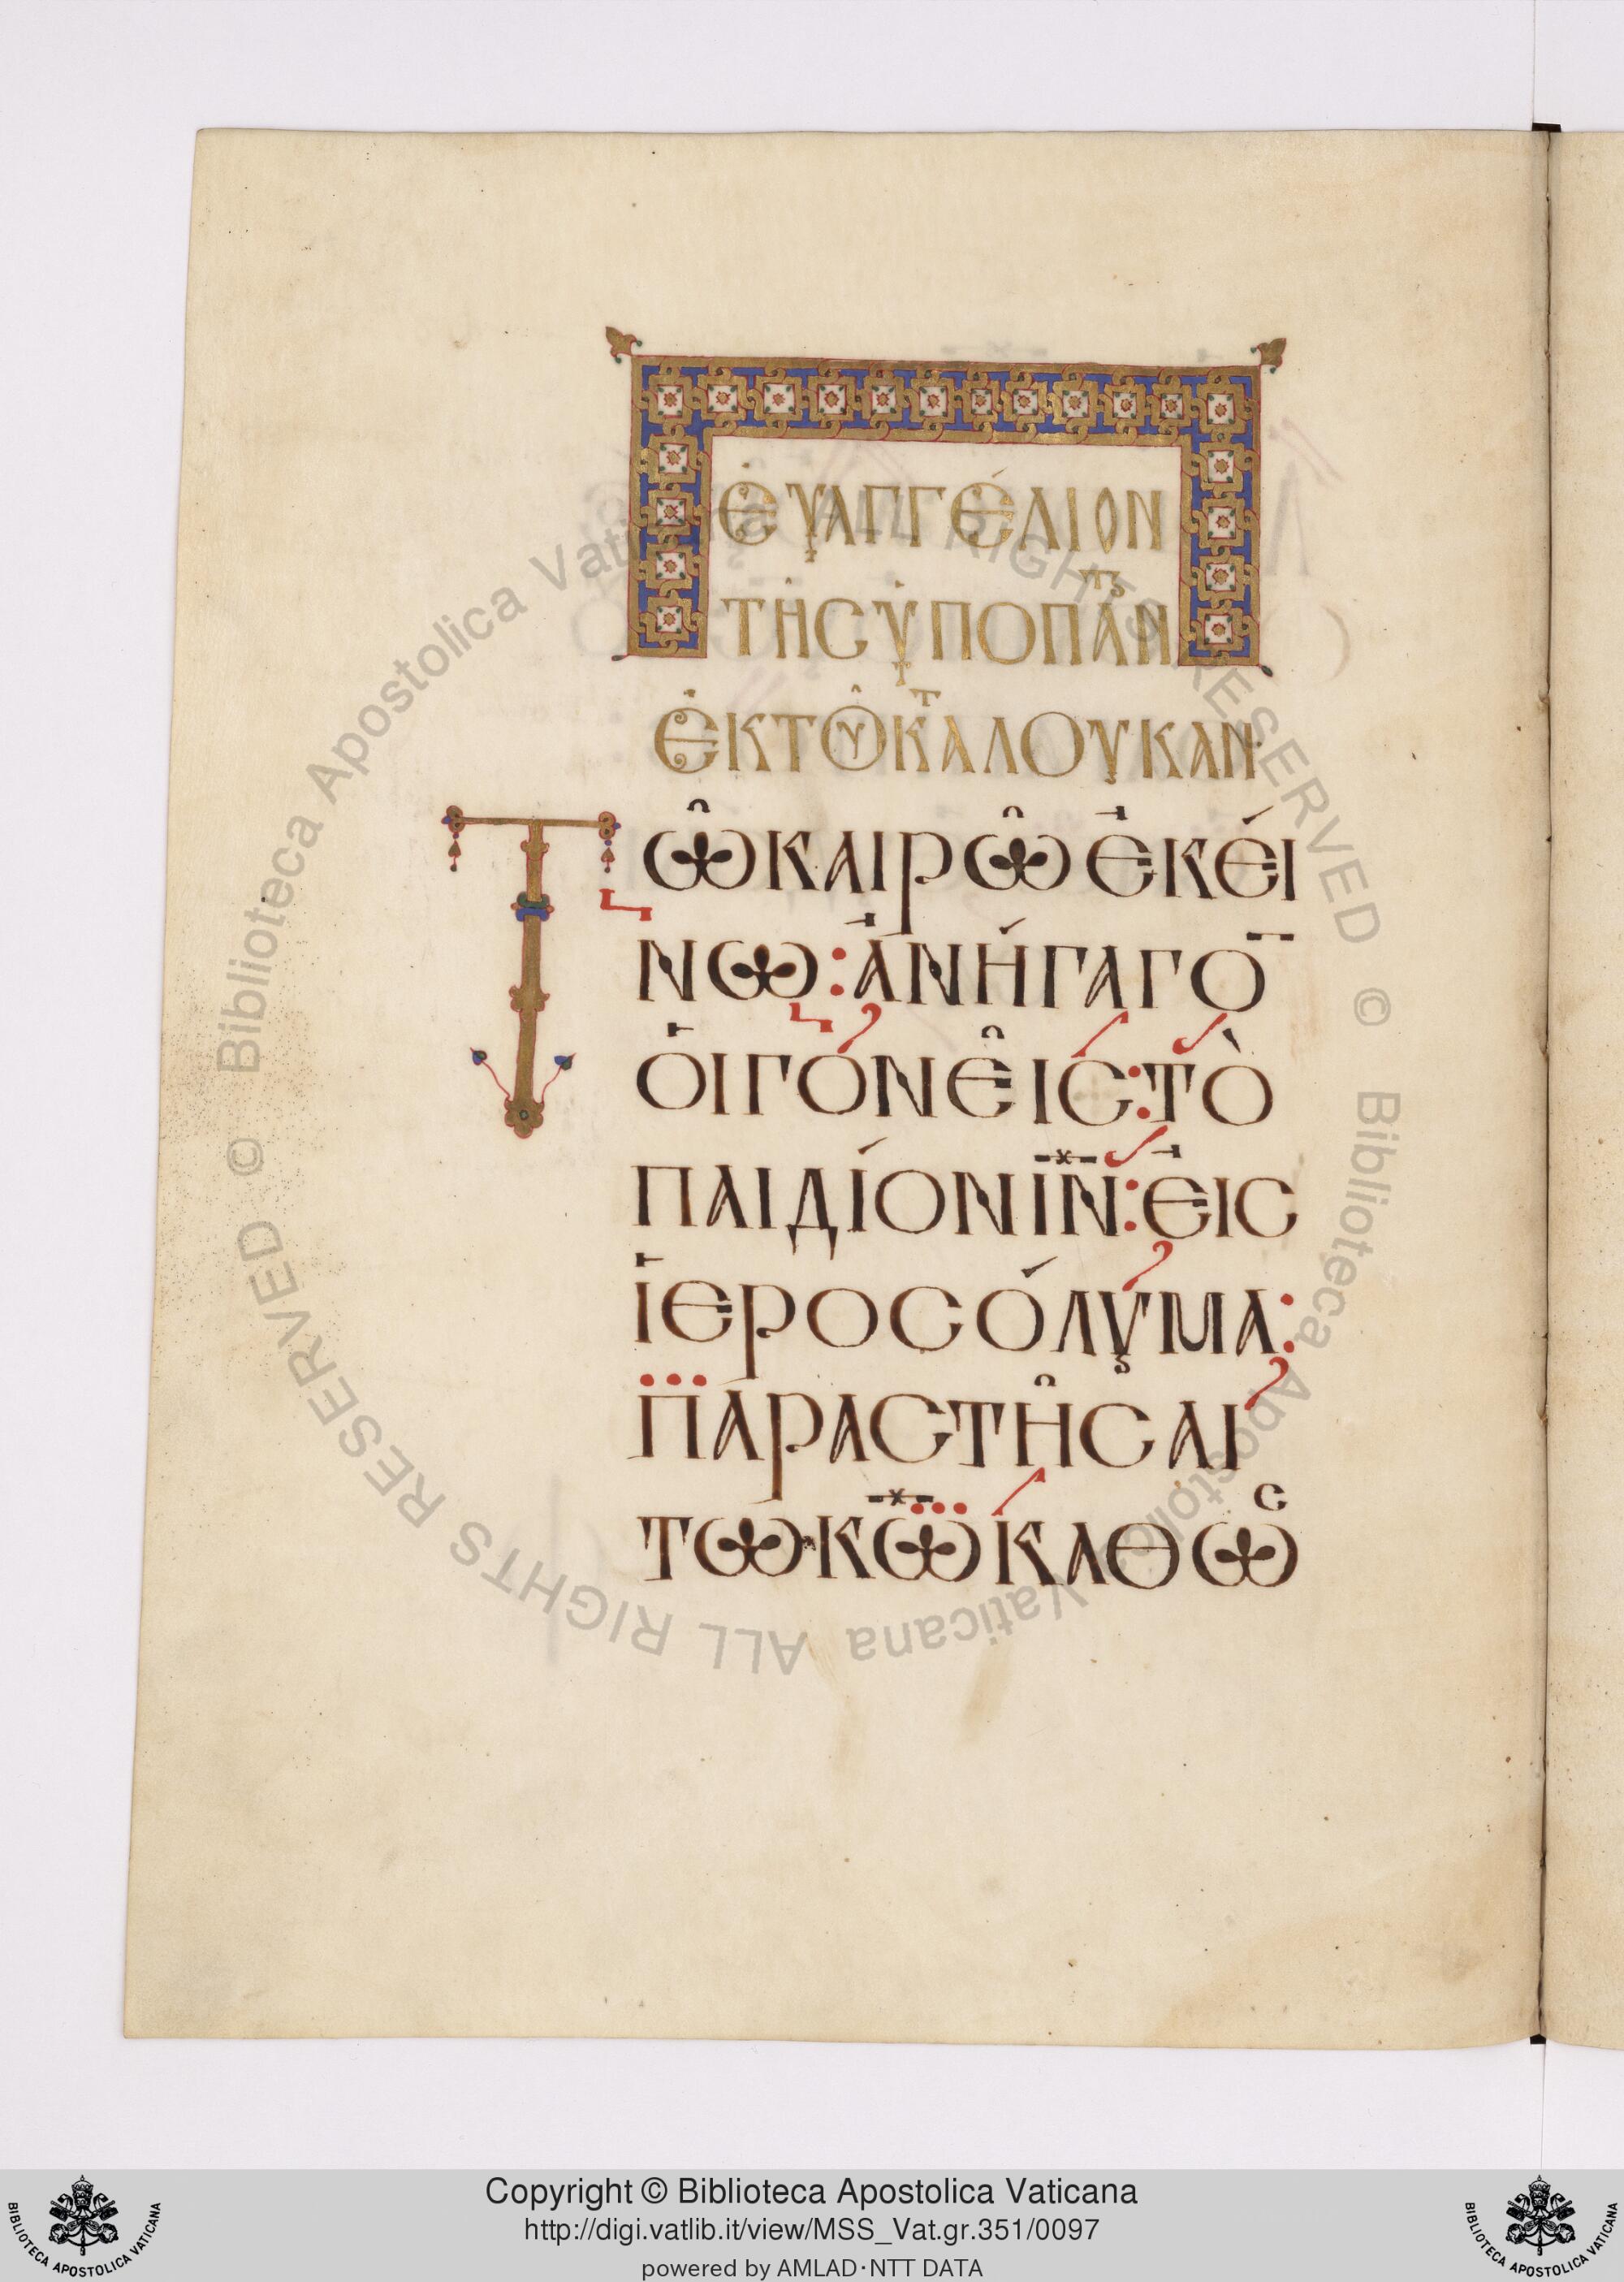 ΕΥΑΓΓΕΛΙΟΝ
ΤΗΣ ΥΠΟΠΑΝΤ
ΕΚ ΤΟΥ ΚΑΤ ΛΟΥΚΑΝ
ΤΩ ΚΑΙΡΩ ΕΚΕΙ
ΝΩ: ΑΝΗΓΑΓΟ̅
ΟΙ ΓΟΝΕΙΣ: ΤΟ
ΠΑΙΔΙΟΝ Ι̅Ν̅: ΕΙΣ
ΙΕΡΟΣΟΛΥΜΑ:
ΠΑΡΑΣΤΗΣΑΙ
ΤΩ Κ̅Ω̅ ΚΑΘΩΣ
Biblioteca Apostolica Vaticana ALL RIGHTS RESERVED ©
Biblioteca Apostolica Vaticana ALL RIGHTS RESERVED ©
Copyright © Biblioteca Apostolica Vaticana
http://digi.vatlib.it/view/MSS_Vat.gr.351/0097
powered by AMLAD·NTT DATA
BIBLIOTECA APOSTOLICA VATICANA
BIBLIOTECA APOSTOLICA VATICANA